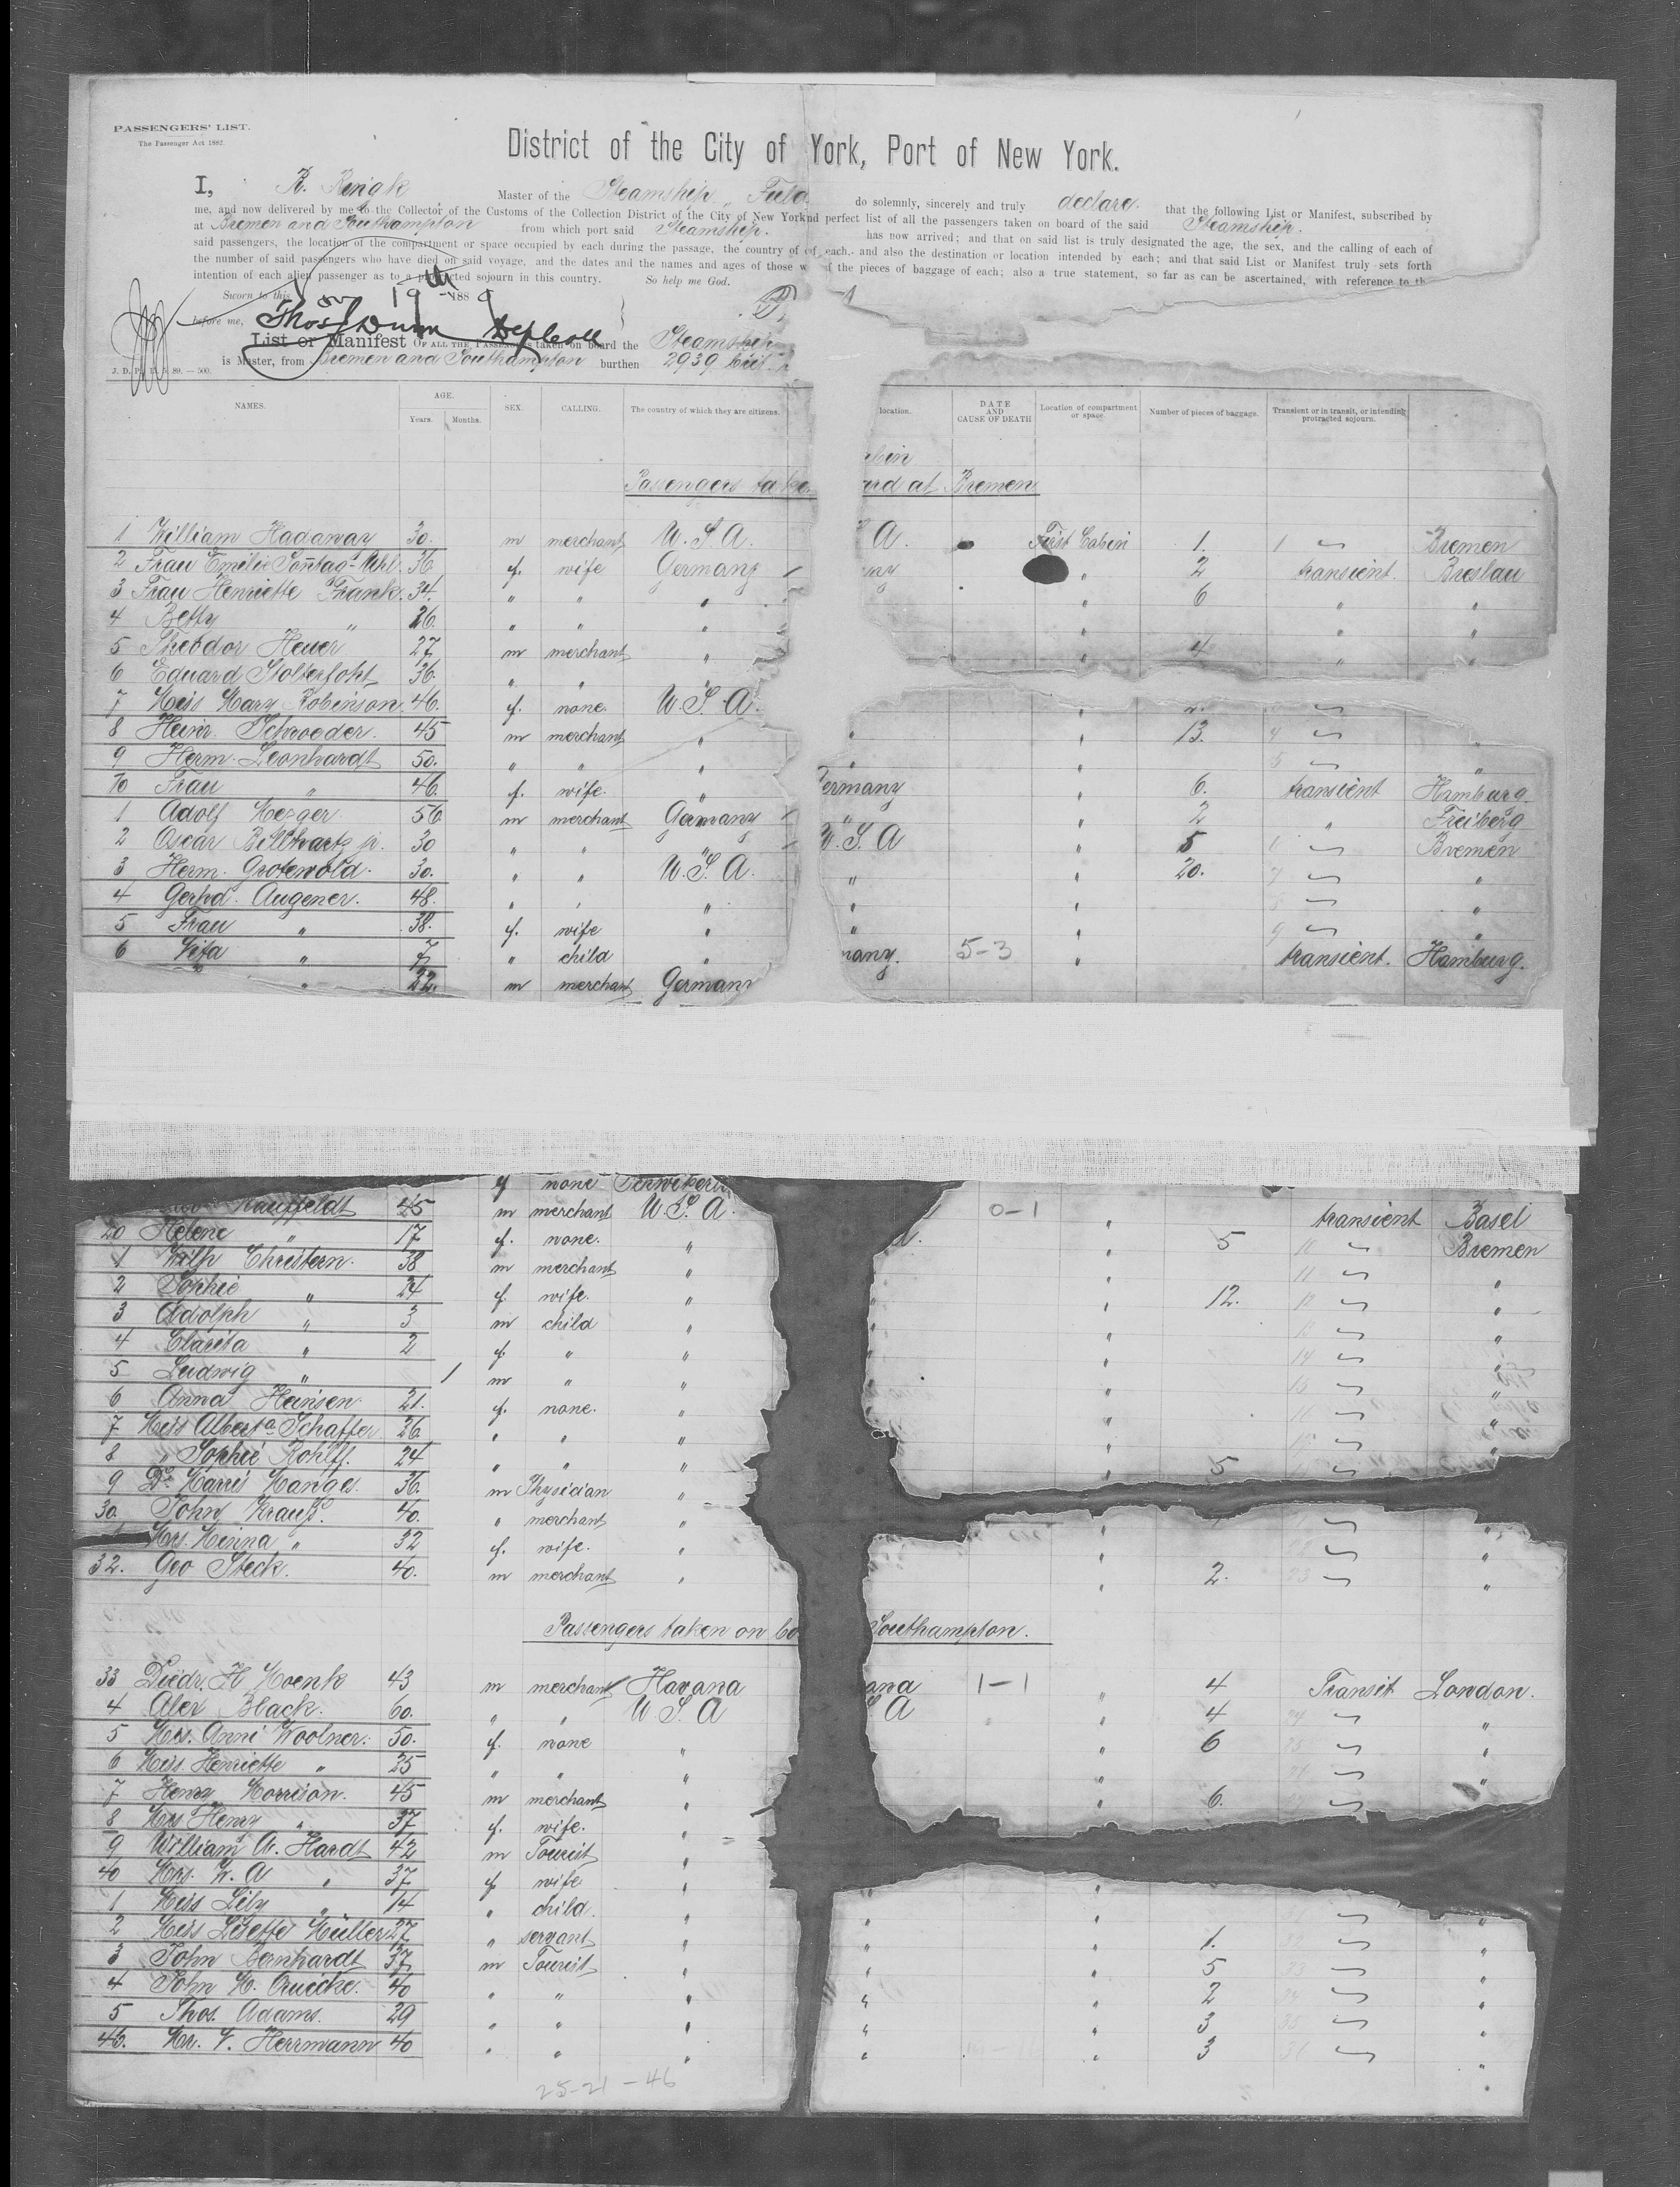 PASSENGERS' LIST.
The Passenger Act 1882.
District of the City of York, Port of New York.
I, R. Ringk Master of the Steamship „ Fuld do solemnly, sincerely and truly declare that the following List or Manifest, subscribed by
me, and now delivered by me to the Collector of the Customs of the Collection District of the City of New York nd perfect list of all the passengers taken on board of the said Steamship.
at Bremen and Southampton from which port said Steamship. has now arrived; and that on said list is truly designated the age, the sex, and the calling of each of
said passengers, the location of the compartment or space occupied by each during the passage, the country of of each, and also the destination or location intended by each; and that said List or Manifest truly sets forth
the number of said passengers who have died on said voyage, and the dates and the names and ages of those w f the pieces of baggage of each; also a true statement, so far as can be ascertained, with reference to th
intention of each alien passenger as to a protracted sojourn in this country. So help me God.
Sworn to this 19th 1889
before me, Thos Dunn Dep Coll
List or Manifest OF ALL THE PASSENGERS taken on board the Steamship
is Master, from Bremen and Southampton burthen 2939
J. D. P. 89. — 500.
NAMES. AGE. Years. Months. SEX. CALLING. The country of which they are citizens. location. DATE AND CAUSE OF DEATH Location of compartment or space. Number of pieces of baggage. Transient or in transit, or intending protracted sojourn.
bin
Passengers take ard at Bremen
1 William Hadaway 30. m merchant U. S. A. A. First Cabin 1. 1 Bremen
2 Frau Emilie Sonntag-Uhl. 36 f. wife Germany ny " 2 transient. Breslau
3 Frau Henriette Frank. 34. " " " " 6 " "
4 Betty " 26. " " " " " "
5 Theodor Heuer 27 m merchant " " 4 " "
6 Eduard Stolterfoht 36. " " "
7 Miss Mary Robinson. 46. f. none. U. S. A. " 2.
8 Heinr. Schroeder. 45 m merchant " " " 13. 4 "
9 Herm. Leonhardt 50. " " " " " 5 "
10 Frau " 46. f. wife. " ermany " 6. transient Hamburg.
1 Adolf Mezger 56 m merchant Germany " " 2 " Freiberg
2 Oscar Billhartz jr. 30 " " " U. S. A " 5 Bremen
3 Herm. Grotewold. 30. " " U. S. A. " " 20. 7 "
4 Gerhd. Augener. 48. " " " " " "
5 Frau " 38. f. wife " " " 9 "
6 Vita " 7 " child " many. 5-3 " transient. Hamburg.
" 22. m merchant German
f none
Kauffeldt 45 m merchant U. S. A. 0-1 " transient Basel
20 Helene " 17 f. none. " " 5 10 Bremen
1 Wilh Christern. 38 m merchant " " 11 "
2 Sophie " 24 f. wife. " " " 12. 12 "
3 Adolph " 3 m child " " " 13 "
4 Clarita " 2 f. " " " 14 "
5 Ludwig " 1 m " " " 15 "
6 Anna Heinsen 21. f. none. " " "
7 Miss Alberta Schaffer 26 " " " "
8 " Sophie Rohlff. 24 " " " " 5
9 Dr. Harris Mangel. 36. m Physician "
30 John Krauß. 40. " merchant " " "
Mrs. Minna " 32 f. wife. " " "
32. Geo Steck. 40. m merchant " " 2. 23 "
Passengers taken on bo Southampton.
33 Diedr. H Moenk 43 m merchant Havana ana 1-1 " 4 Transit London.
4 Alex Black. 60. " " U S A A " 4 24 "
5 Mrs. Anni Woolner. 50. f. none " " 6 25 "
6 Miss. Henriette " 25 " " " " "
7 Henry Morrison. 45 m merchant " " 6.
8 Mrs Henry " 37 f. wife. "
9 William A. Hardt 42 m Tourist "
40 Mrs. W. A " 37 f wife " " "
1 Miss Lily " 14 " child. " " " "
2 Miss Lisette Müller 27 " servant " " " 1. "
3 John Bernhardt 37. m Tourist " " " 5 33 "
4 John H. Quicke. 40 " " " " " 2 34 "
5 Thos. Adams. 29 " " " " " 3 35 "
46. Mr. V. Herrmann 40 " " " " " 3 36 "
25-21-46